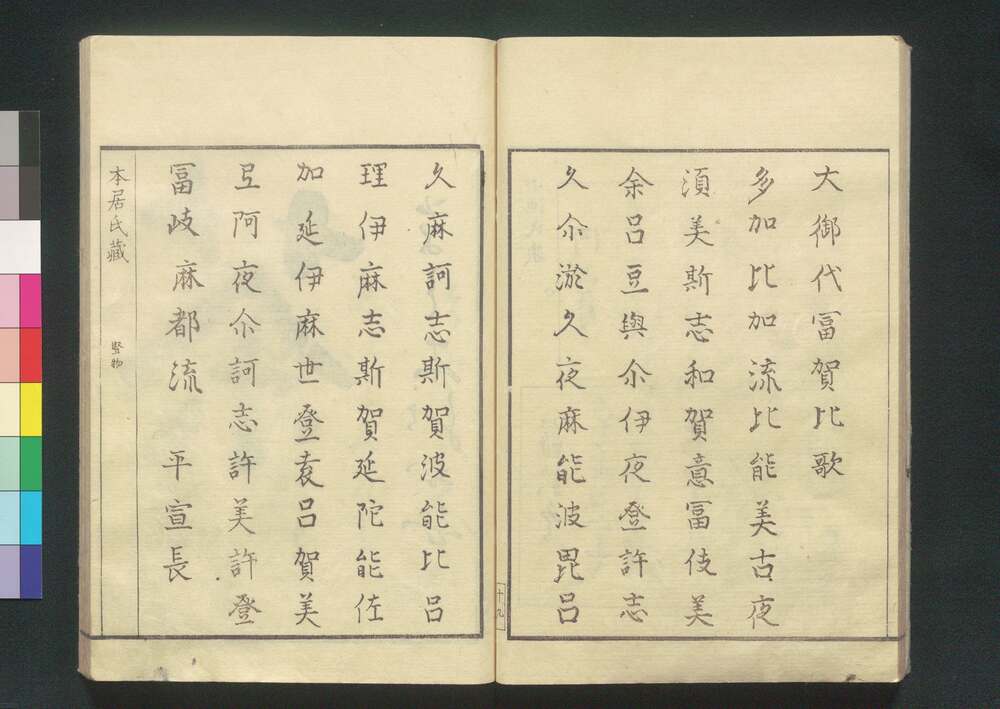 大御代冨賀比歌
多加比加流比能美古夜
須美斯志和賀意冨伎美
余呂豆與尒伊夜登許志
久尒淤久夜麻能波毘呂
十九
久麻訶志斯賀波能比呂
理伊麻志斯賀延陀能佐
加延伊麻世登袁呂賀美
弖阿夜尒訶志許美許登
冨岐麻都流　平宣長
本居氏藏